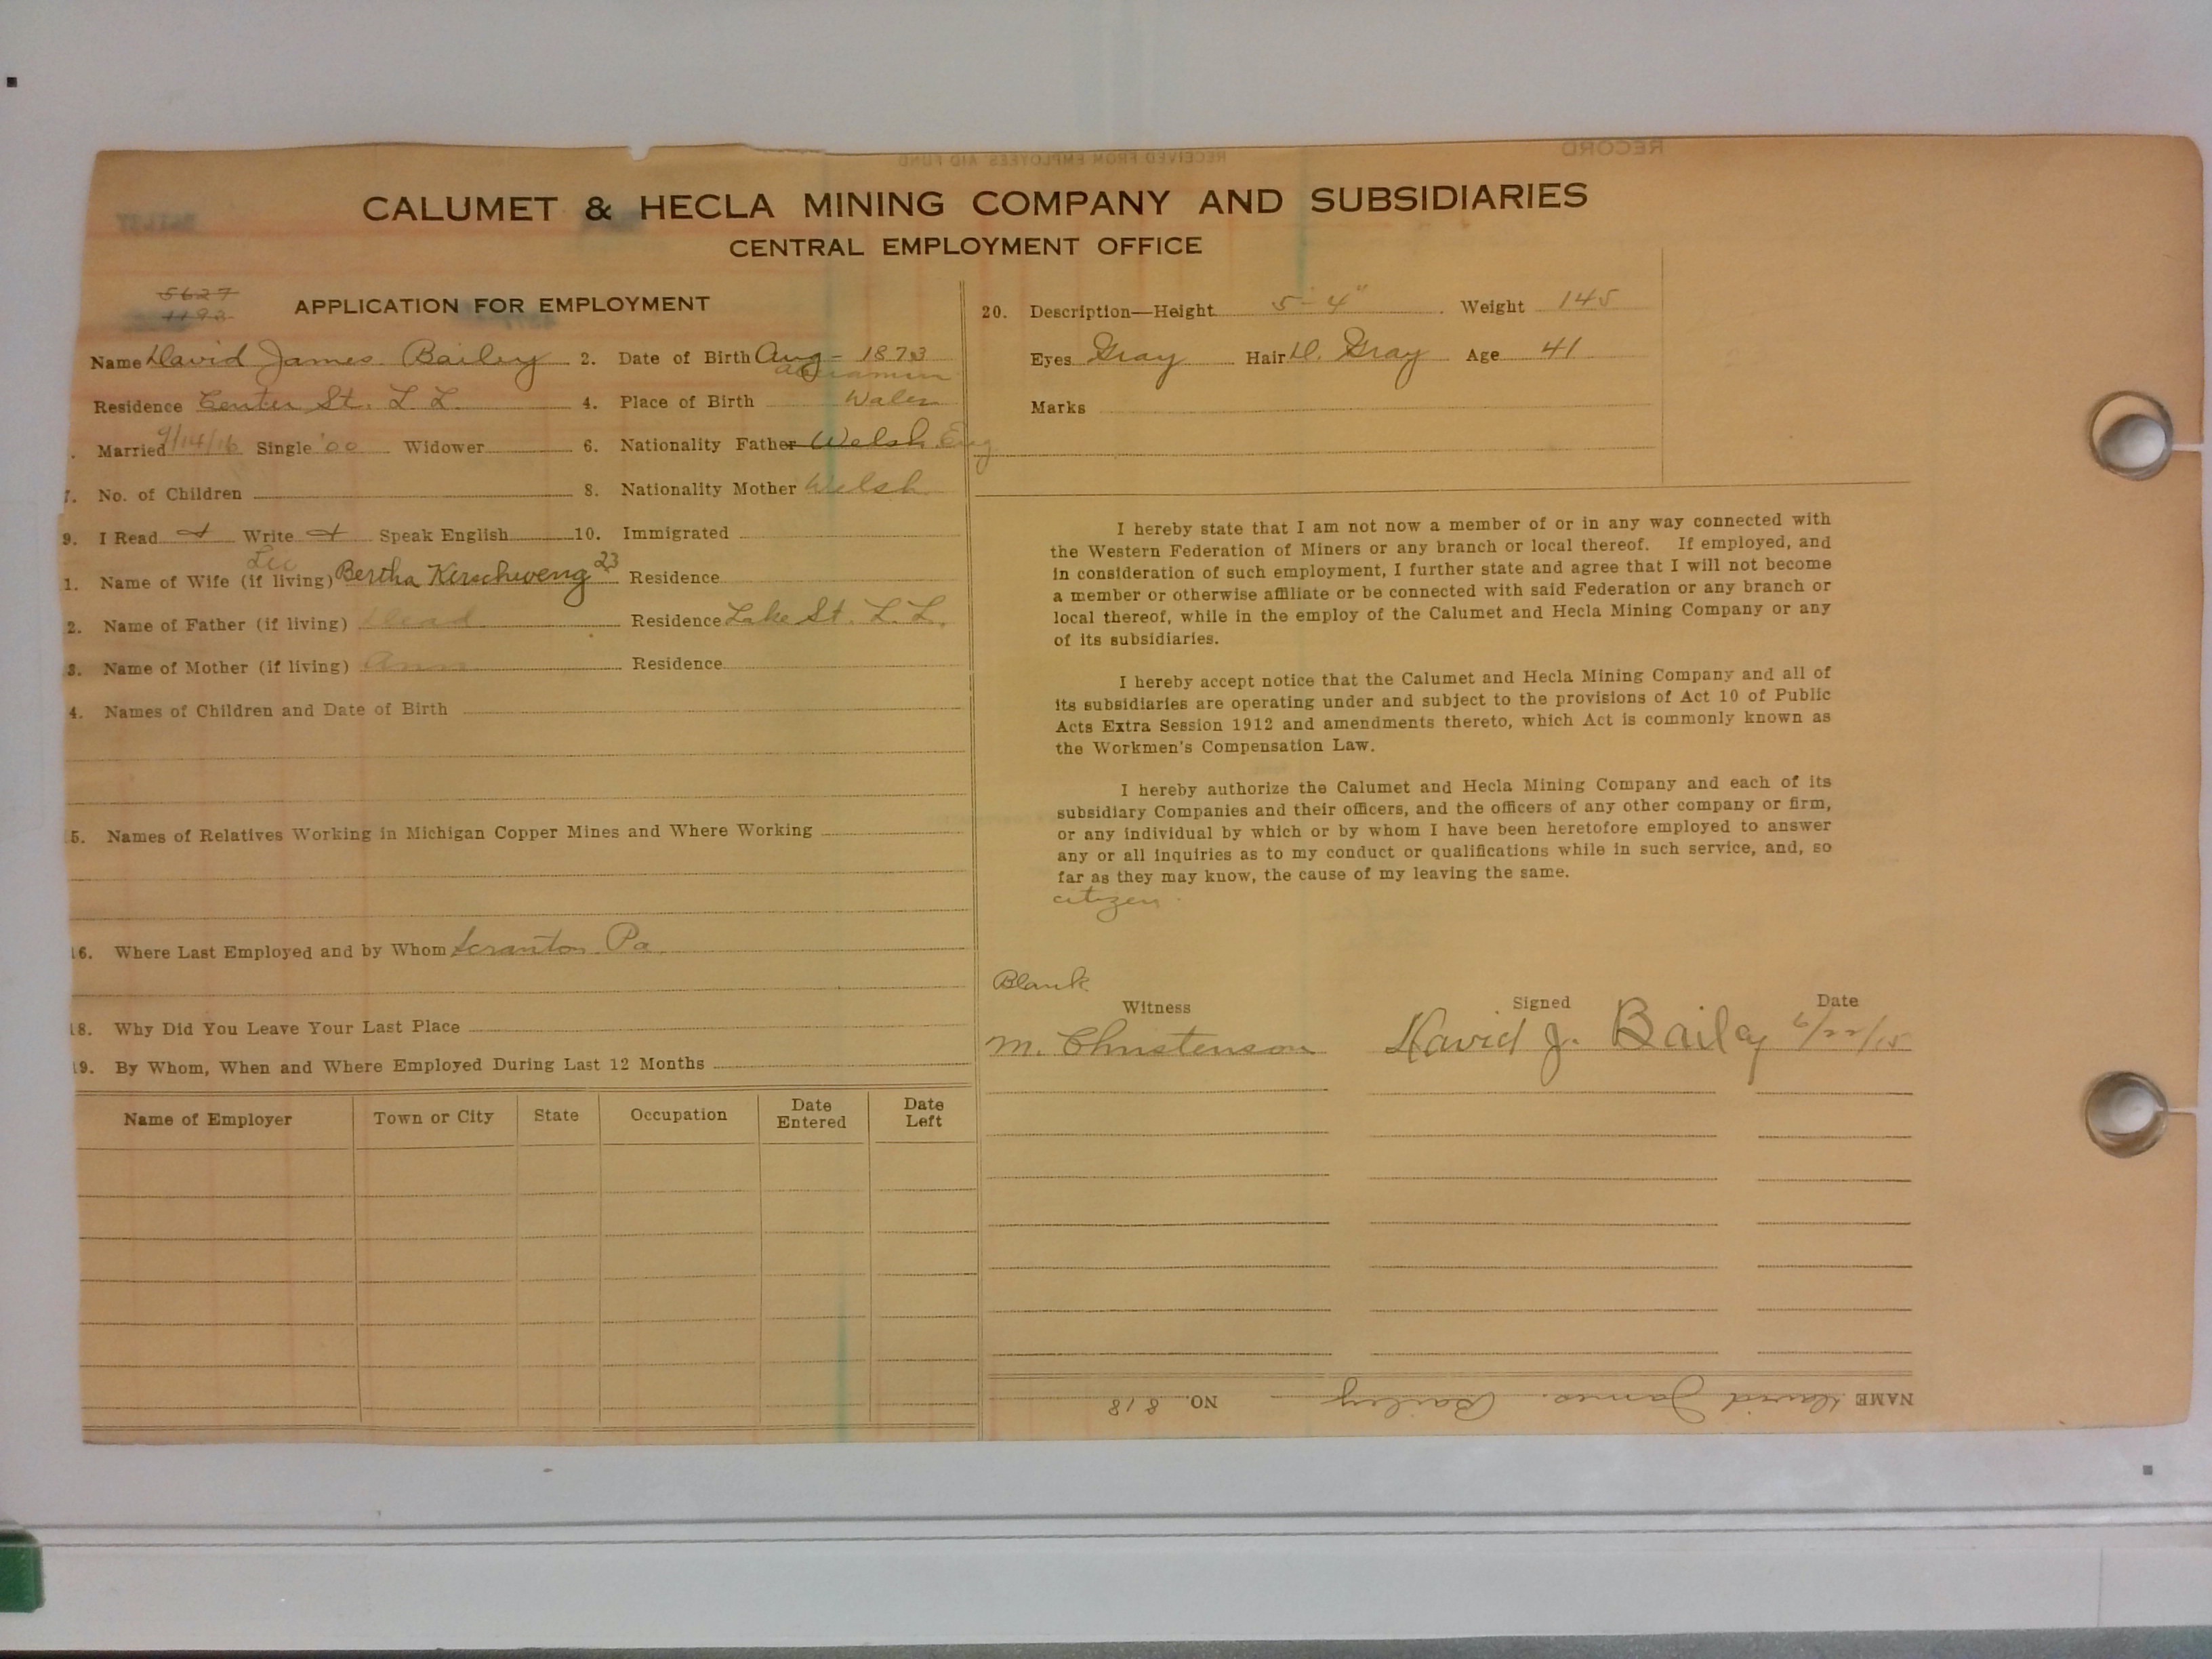 RECEIVED FROM EMPLOYEES AID FUND
RECORD
CALUMET & HECLA MINING COMPANY AND SUBSIDIARIES
CENTRAL EMPLOYMENT OFFICE
5627
1193
APPLICATION FOR EMPLOYMENT
Name David James Bailey 2. Date of Birth Aug - 1873
Residence Center St. L L. 4. Place of Birth Wales
. Married 9/14/16 Single '00 Widower 6. Nationality Father Welsh Eng
7. No. of Children 8. Nationality Mother Welsh
9. I Read Write Speak English 10. Immigrated
1. Name of Wife (if living) Bertha Kerschweng 23 Residence
2. Name of Father (if living) Dead Residence Lake St. L. L.
3. Name of Mother (if living) Ann Residence
4. Names of Children and Date of Birth
5. Names of Relatives Working in Michigan Copper Mines and Where Working
16. Where Last Employed and by Whom Scranton Pa
18. Why Did You Leave Your Last Place
19. By Whom, When and Where Employed During Last 12 Months
Name of Employer Town or City State Occupation Date Entered Date Left
20. Description—Height 5-4" Weight 145
Eyes Gray Hair D. Gray Age 41
Marks
I hereby state that I am not now a member of or in any way connected with
the Western Federation of Miners or any branch or local thereof. If employed, and
in consideration of such employment, I further state and agree that I will not become
a member or otherwise affiliate or be connected with said Federation or any branch or
local thereof, while in the employ of the Calumet and Hecla Mining Company or any
of its subsidiaries.
I hereby accept notice that the Calumet and Hecla Mining Company and all of
its subsidiaries are operating under and subject to the provisions of Act 10 of Public
Acts Extra Session 1912 and amendments thereto, which Act is commonly known as
the Workmen's Compensation Law.
I hereby authorize the Calumet and Hecla Mining Company and each of its
subsidiary Companies and their officers, and the officers of any other company or firm,
or any individual by which or by whom I have been heretofore employed to answer
any or all inquiries as to my conduct or qualifications while in such service, and, so
far as they may know, the cause of my leaving the same.
citizen
Blank
Witness Signed Date
M. Christenson David J. Bailey 6/22/15
NAME David James Bailey NO. 818